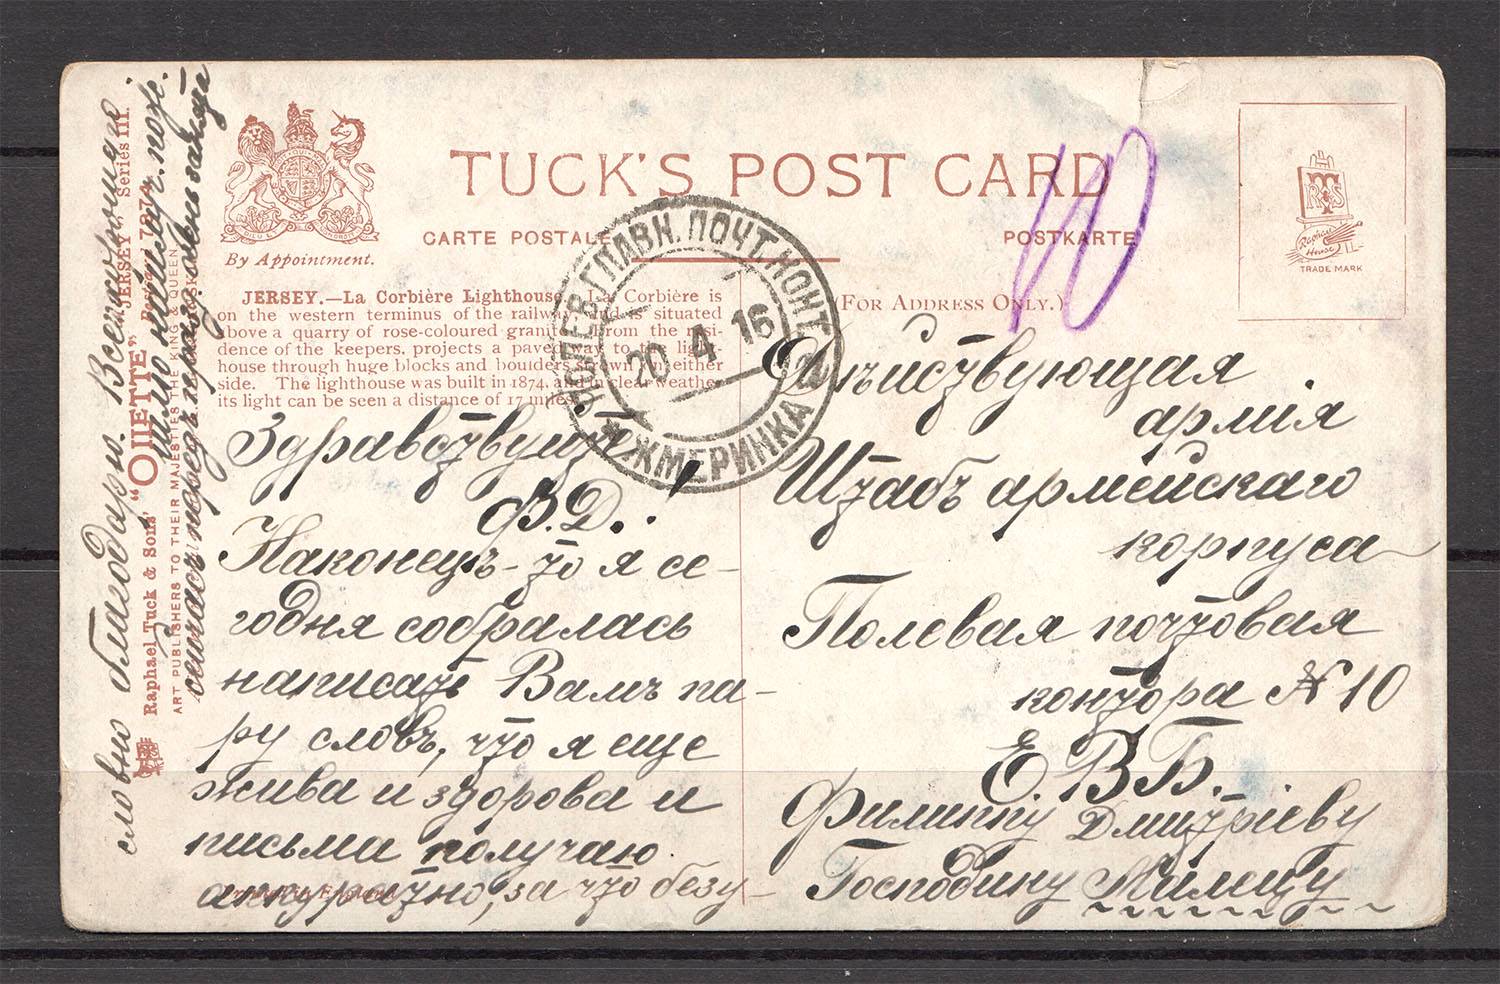 TUCK'S POST CARD
CARTE POSTALE
POSTKARTE
By Appointment.
JERSEY.—La Corbière Lighthouse. La Corbière is
on the western terminus of the railway, and is situated
above a quarry of rose-coloured granite. From the resi-
dence of the keepers, projects a paved way to the light-
house through huge blocks and boulders strewn on either
side. The lighthouse was built in 1874, and in clear weather
its light can be seen a distance of 17 miles.
(FOR ADDRESS ONLY.)
TRADE MARK
Raphael House
10
ГЛАВН. ПОЧТ. КОНТ.
20 4 16
ЖМЕРИНКА
Здравствуйте
Ф. Д.!
Наконецъ-то я се-
годня собралась
написать Вамъ па-
ру словъ, что я еще
жива и здорова и
письма получаю
аккуратно, за что безу-
словно благодарю.
сейчасъ передъ
Дѣйствующая
армія
Штабъ армейскаго
корпуса
Полевая почтовая
контора № 10
Е. В. Б.
Филиппу Дмитріеву
Господину Малецу
Raphael Tuck & Sons' "OILETTE"
JERSEY Series III.
ART PUBLISHERS TO THEIR MAJESTIES THE KING & QUEEN